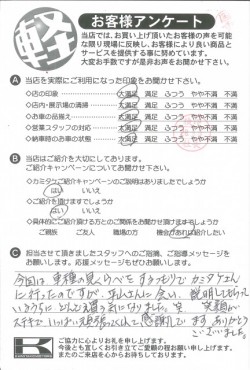 軽
お客様アンケート
当店では、お買い上げ頂いたお客様の声を可能
な限り現場に反映し、お客様により良い商品と
サービスを提供する事に努めています。
大変お手数ですが是非お声をお聞かせ下さい。
A 当店を実際にご利用になった印象をお聞かせ下さい。
◇店の印象 大満足 満足 ふつう やや不満 不満
◇店内・展示場の清掃 大満足 満足 ふつう やや不満 不満
◇お車の品揃え 大満足 満足 ふつう やや不満 不満
◇営業スタッフの対応 大満足 満足 ふつう やや不満 不満
◇納車時のお車の状態 大満足 満足 ふつう やや不満 不満
B 当店はご紹介を大切にしております。
ご紹介キャンペーンについてお聞かせ下さい。
◇カミタケご紹介キャンペーンのご説明はありましたでしょうか
はい いいえ
◇ご紹介を頂けますでしょうか
はい いいえ
◇具体的にご紹介頂ける方とのご関係をお聞かせ頂けますでしょうか
ご親族 ご友人 職場の方 機会があれば紹介したい
C 担当させて頂きましたスタッフへのご指摘、ご指導メッセージを
お願いします。応援メッセージもぜひお願いします。
今回は車種の見くらべをするつもりでカミタケさん
に行ったのですが
いきなり
ステキで
感謝しています ありがとう
ございました。
K
ご協力に心よりお礼を申し上げます。
今後とも宜しくお引き立てご愛顧の程お願い申し上げます。
またのご来店を心からお待ちしております。